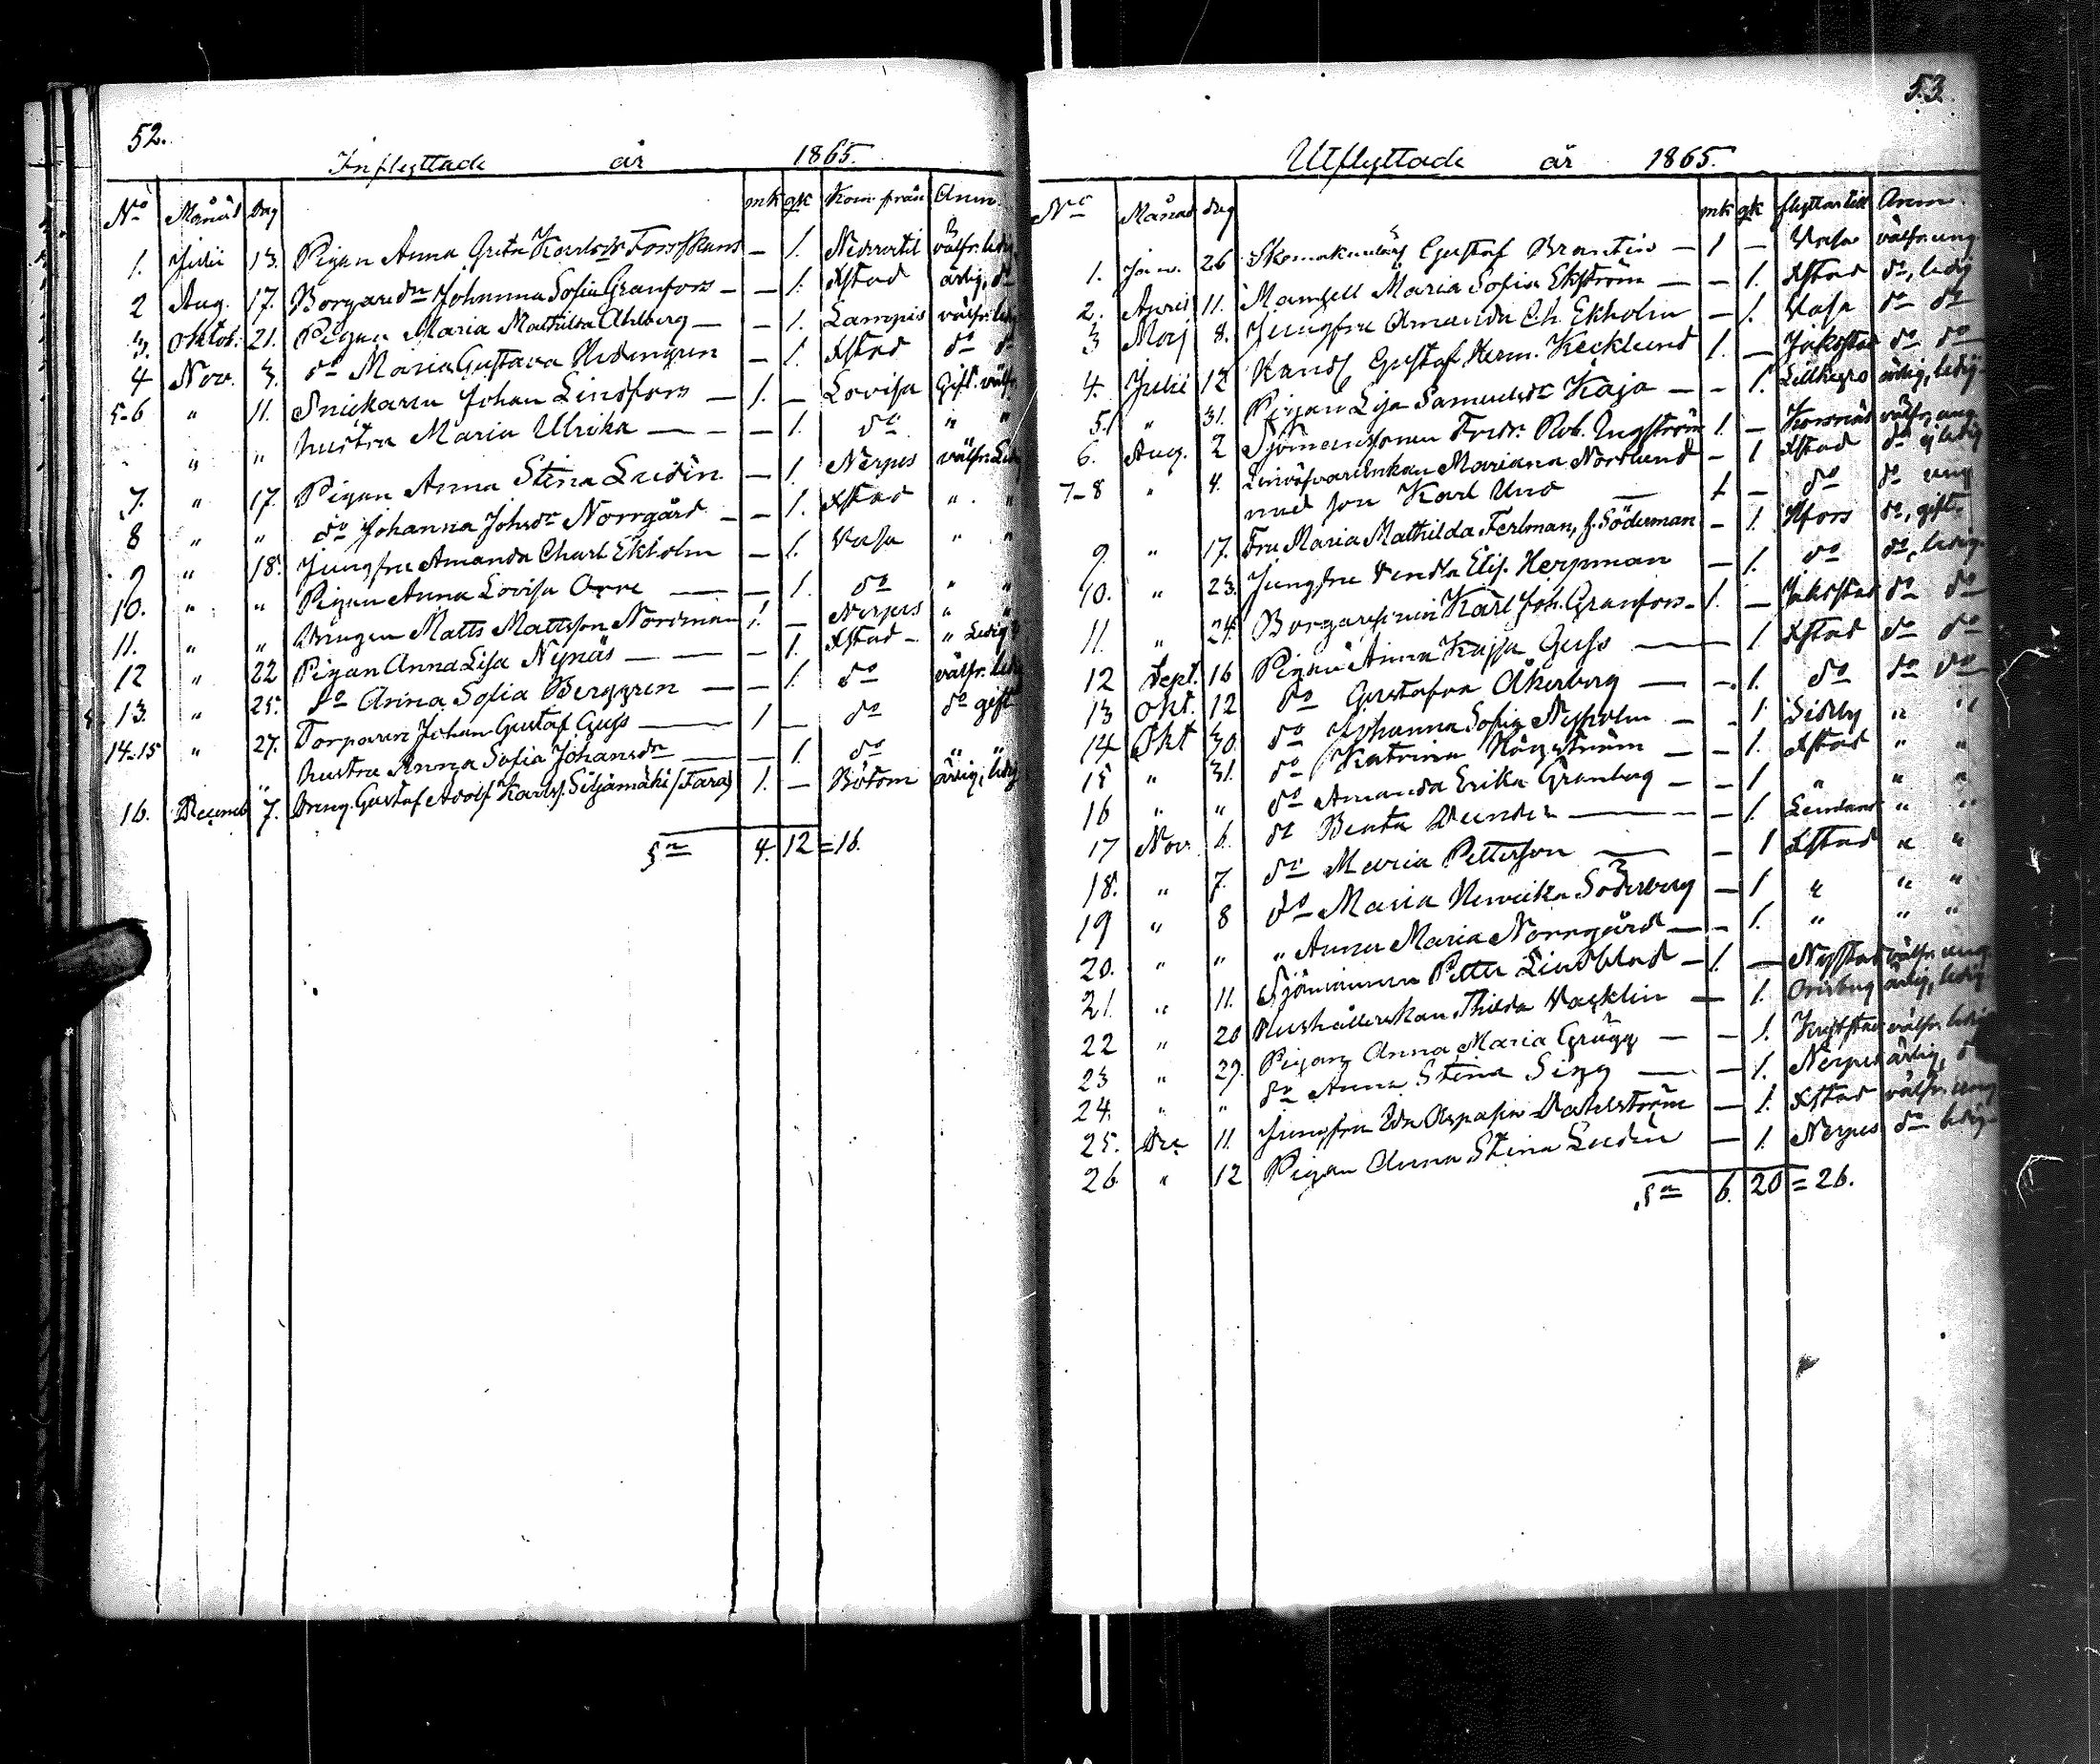 52.
Inflyttade år 1865.
No Månad Dag mk qk Kom från Anm.
1. Julii 13. Pigan Anna Greta Karlsdr Forsskans — 1. Nedervetil välfr. ledig
2 Aug. 17. Borgaredn Johanna Sofia Granfors — — 1. Xstad ärlig, do
3. Oktob. 21. Pigan Maria Mathilda Ahlberg — — 1. Lampis välfr. ledig
4 Nov. 3. do Maria Gustava — 1. Xstad do do
5-6 " 11. Snickaren Johan Lindfors — 1. — Lovisa Gift. välfr.
" " hustru Maria Ulrika — — — 1. do " "
7. " 17. Pigan Anna Stina Ludin — 1. Nerpes välfr. Led
8 " " do Johanna Johsdr Norrgård — — 1. Xstad " "
9 " 18. Jungfru Amanda Charl Ekholm — 1. Vasa " "
10. " " Pigan Anna Lovisa Orre — — 1. do " "
11. " " Drängen Matts Mattsson Nordman 1. — Nerpes " "
12 " 22 Pigan Anna Lisa Nynäs — — — 1. Xstad — " Ledig
13. " 25. do Anna Sofia Berggren — — 1. do välfr. led
14-15 " 27. Torparen Johan Gustaf Guss — 1 — do do gift
hustru Anna Sofia Johansdr — — 1. do " "
16. Decemb 7. Dreng. Gustaf Adolf Karlss. Siljamäki (Fara) 1. — Bötom ärlig, ledig
Sa 4. 12 = 16.
53.
Utflyttade år 1865.
No Månad dag mk qk flyttar till Anm.
1. Jan. 26 Skomakarelärl Gustaf Brantin — 1 — Vasa välfr. ung
2. April 11. Mamsell Maria Sofia Ekström — — 1. Xstad do, ledig
3 Maj 8. Jungfru Amanda Ch. Ekholm — 1. Vasa do do
4. Julii 12 Handl Gustaf Herm. Kecklund 1. — Jakobstad do do
5. " 31. Pigan Lisa Samuelsdr Kaja — — 1. Lillkyro ärlig, ledig
6. Aug. 2 Sjömanssonen Fredr. Rob. Engström 1. — Korsnäs välfr, ung
7-8 " 4. Linväfvarenkan Mariana Nordlund — 1 Xstad do ej ledig
med son Karl Und — 1 — do do ung
9. " 17. Fru Maria Mathilda Ferlman, f. Söderman — 1. Hfors do, gift.
10. " 23. Jungfru Vendla Elis. Herpman — 1. do do, ledig
11. " 24. Borgaresonen Karl Joh. Granfors — 1. — Jakobstad do do
12 Sept. 16 Pigan Anna Kajsa Guss — 1 Xstad do do
13 Okt. 12 do Gustafva Åkerberg — — 1. do do do
14 Okt 30. do Johanna Sofia Nyholm — — 1 Sideby " "
15 " 31. do Katrina Högström — — 1. Xstad " "
16 " " do Amanda Erika Granberg — — 1 " " "
17 Nov. 6. do Beata — — 1. " "
18. " 7. do Maria Petterson — — 1 Xstad " "
19 " 8 do Maria Henrika Söderberg — 1 " " "
20. " " " Anna Maria Norrgård — — 1. " " "
21. " 11. Sjömannen Petter Lindblad — 1. — Nystad välfr. ung
22 " 20 Hushållerskan Thilda Vacklin — 1. Orisberg ärlig, ledig
23 " 29. Pigan Anna Maria Grägg — — 1. välfr. ledig
24. " " do Anna Stina Sigg — — 1. Nerpes ärlig, do
25. Dec 11. Jungfru Ida Aspasia Dahlström — 1. Xstad välfr. ung
26 " 12 Pigan Anna Stina Ludin — 1. Nerpes do ledig
Sa 6. 20 = 26.